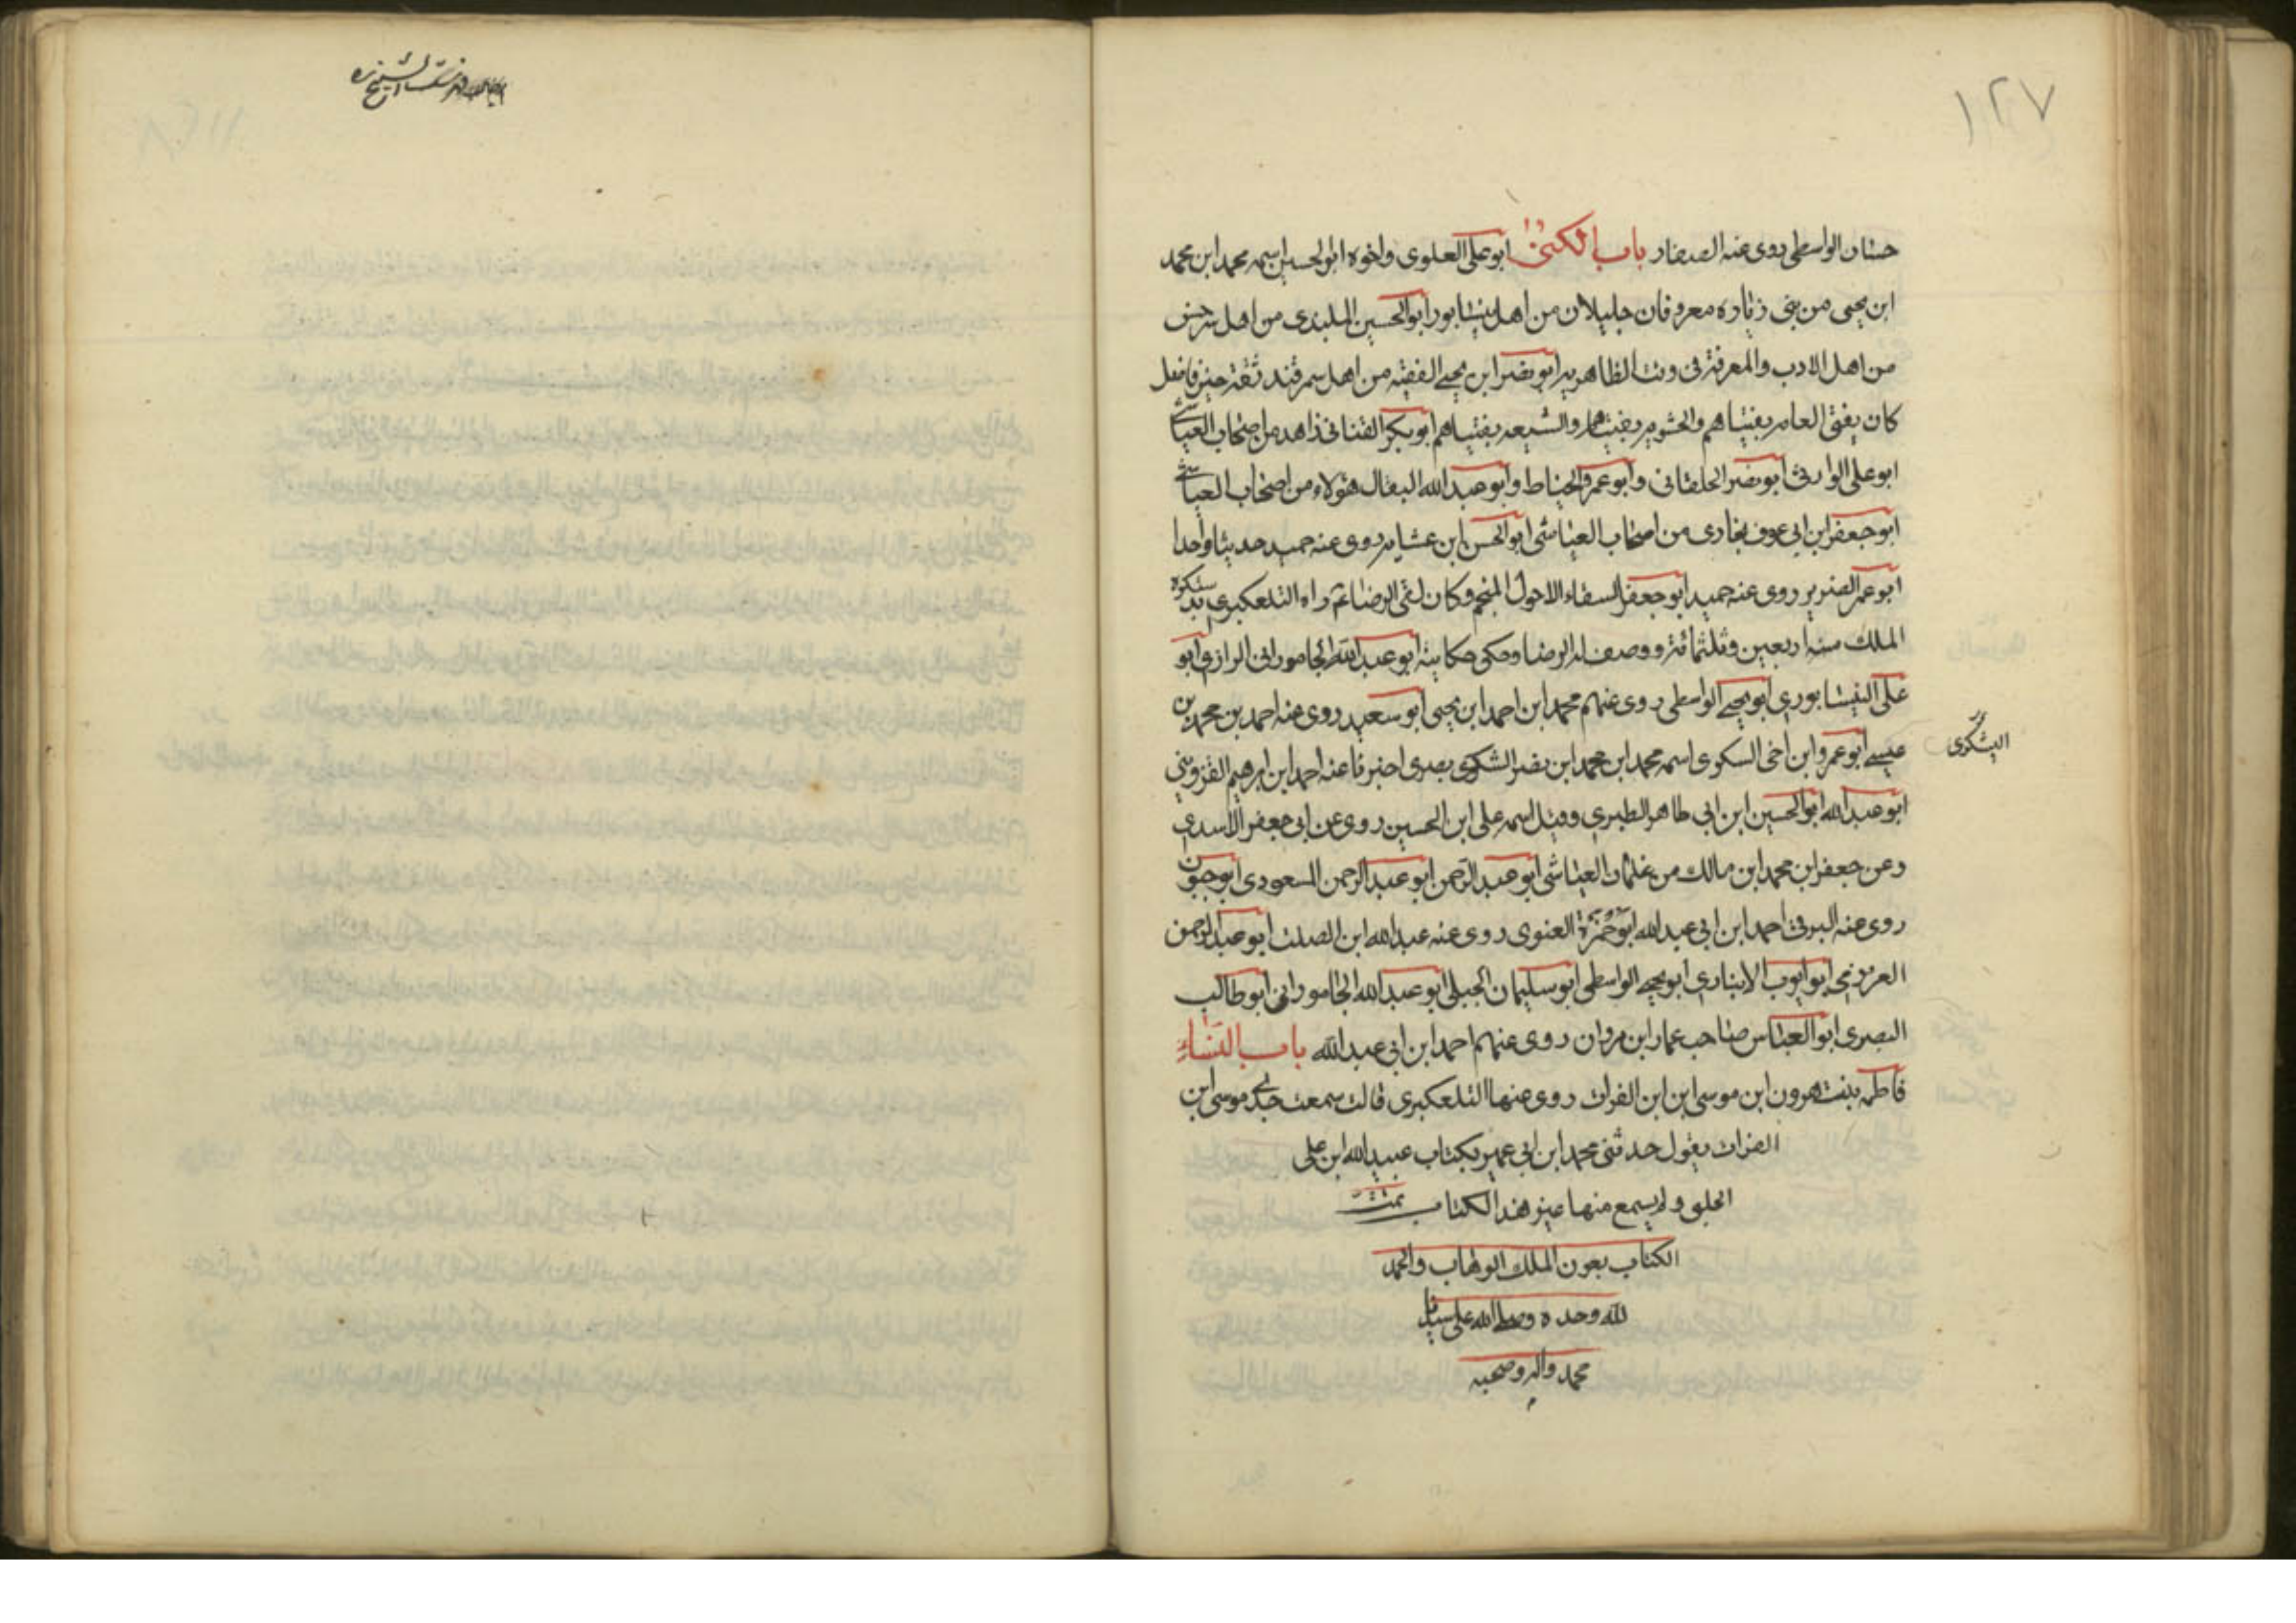 ١٢٧
حسان الواسطي روى عنه الصفار باب الكنى ابو علي العلوى واخوه ابو الحسين اسمه محمد ابن محمد
ابن يحيى من بنى زباره معروفان جليلان من اهل نيشابور ابو الحسين البلبدى من اهل سرخس
من اهل الادب والمعرفة فى وقت الظاهريه ابو نصر ابن يحيى الفقيه من اهل سمرقند ثقة خير فاضل
كان يفتى العامه بفتياهم والحشويه بفتياهم والشيعه بفتياهم ابو بكر القنانى زاهد من اصحاب العياشى
ابو على الوارثى ابو نصر الخلقانى وابو عمرو الخياط وابو عبد الله البقال هؤلاء من اصحاب العياشى
ابو جعفر ابن ابى عوف بخارى من اصحاب العياشى ابو الحسن ابن عشام روى عنه حميد حديثا واحدا
ابو عمر الضرير روى عنه حميد ابو جعفر السقاء الاحول المنجم وكان لقى الرضا ع راه التلعكبرى بدسكرة
الملك سنه اربعين وثلثمائة ووصف له الرضا وحكى حكايته ابو عبد الله الجامورانى الرازى ابو
على النيشابورى ابو يحيى الواسطى روى عنهم محمد ابن احمد ابن يحيى ابو سعيد روى عنه احمد بن محمد بن
عيسى ابو عمرو ابن اخى السكوى اسمه محمد ابن محمد ابن نصر الشكوى بصرى اخبرنا عنه احمد ابن ابرهيم القزوينى
اليشكرى
ابو عبد الله ابو الحسين ابن ابى طاهر الطبرى وقيل اسمه على ابن الحسين روى عن ابى جعفر الاسدى
وعن جعفر ابن محمد ابن مالك من غلمان العياشى ابو عبد الرحمن ابو عبد الرحمن المسعودى ابو جون
روى عنه البرقى احمد ابن ابى عبد الله ابو حمزة الغنوى روى عنه عبد الله ابن الصلت ابو عبد الرحمن
العرزمى ابو ايوب الانبارى ابو يحيى الواسطى ابو سليمان الجبلى ابو عبد الله الجامورانى ابو طالب
البصرى ابو العباس صاحب عمار ابن مروان روى عنهم احمد ابن ابى عبد الله باب النساء
فاطمه بنت هرون ابن موسى ابن ابن الفرات روى عنها التلعكبرى قالت سمعت جدى موسى ابن
الفرات يقول حدثنى محمد ابن ابى عمير بكتاب عبيد الله ابن على
الحلبى ولم يسمع منها غير هذا الكتاب تمت
الكتاب بعون الملك الوهاب والحمد
لله وحده وصلى الله على سيدنا
محمد واله وصحبه